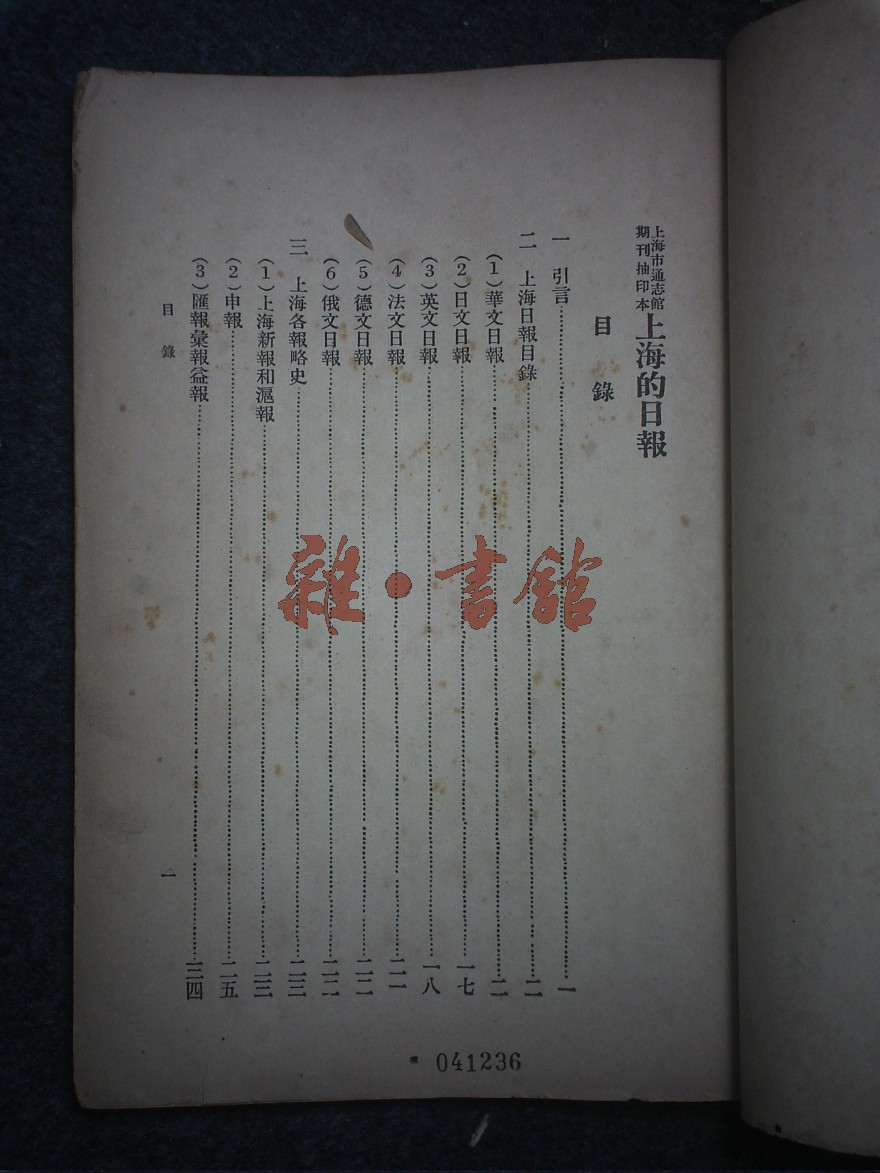 上海市通志館
期刊抽印本
上海的日報
目錄
一 引言……一
二 上海日報目錄……二
(1)華文日報……二
(2)日文日報……一七
(3)英文日報……一八
(4)法文日報……二一
(5)德文日報……二二
(6)俄文日報……二二
三 上海各報略史……二三
(1)上海新報和滬報……二三
(2)申報……二五
(3)匯報彙報益報……三四
目錄
一
041236
雜·書館